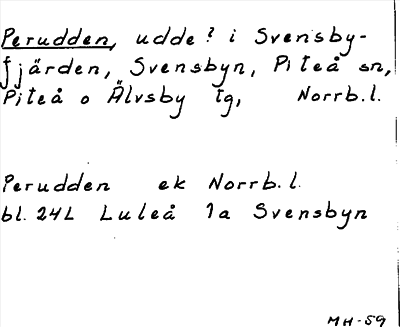 Perudden, udde? i Svensby-
fjärden, Svensbyn, Piteå sn,
Piteå o Älvsby tg, Norrb.l.
Perudden ek Norrb.l.
bl. 24L Luleå 1a Svensbyn
MH-59